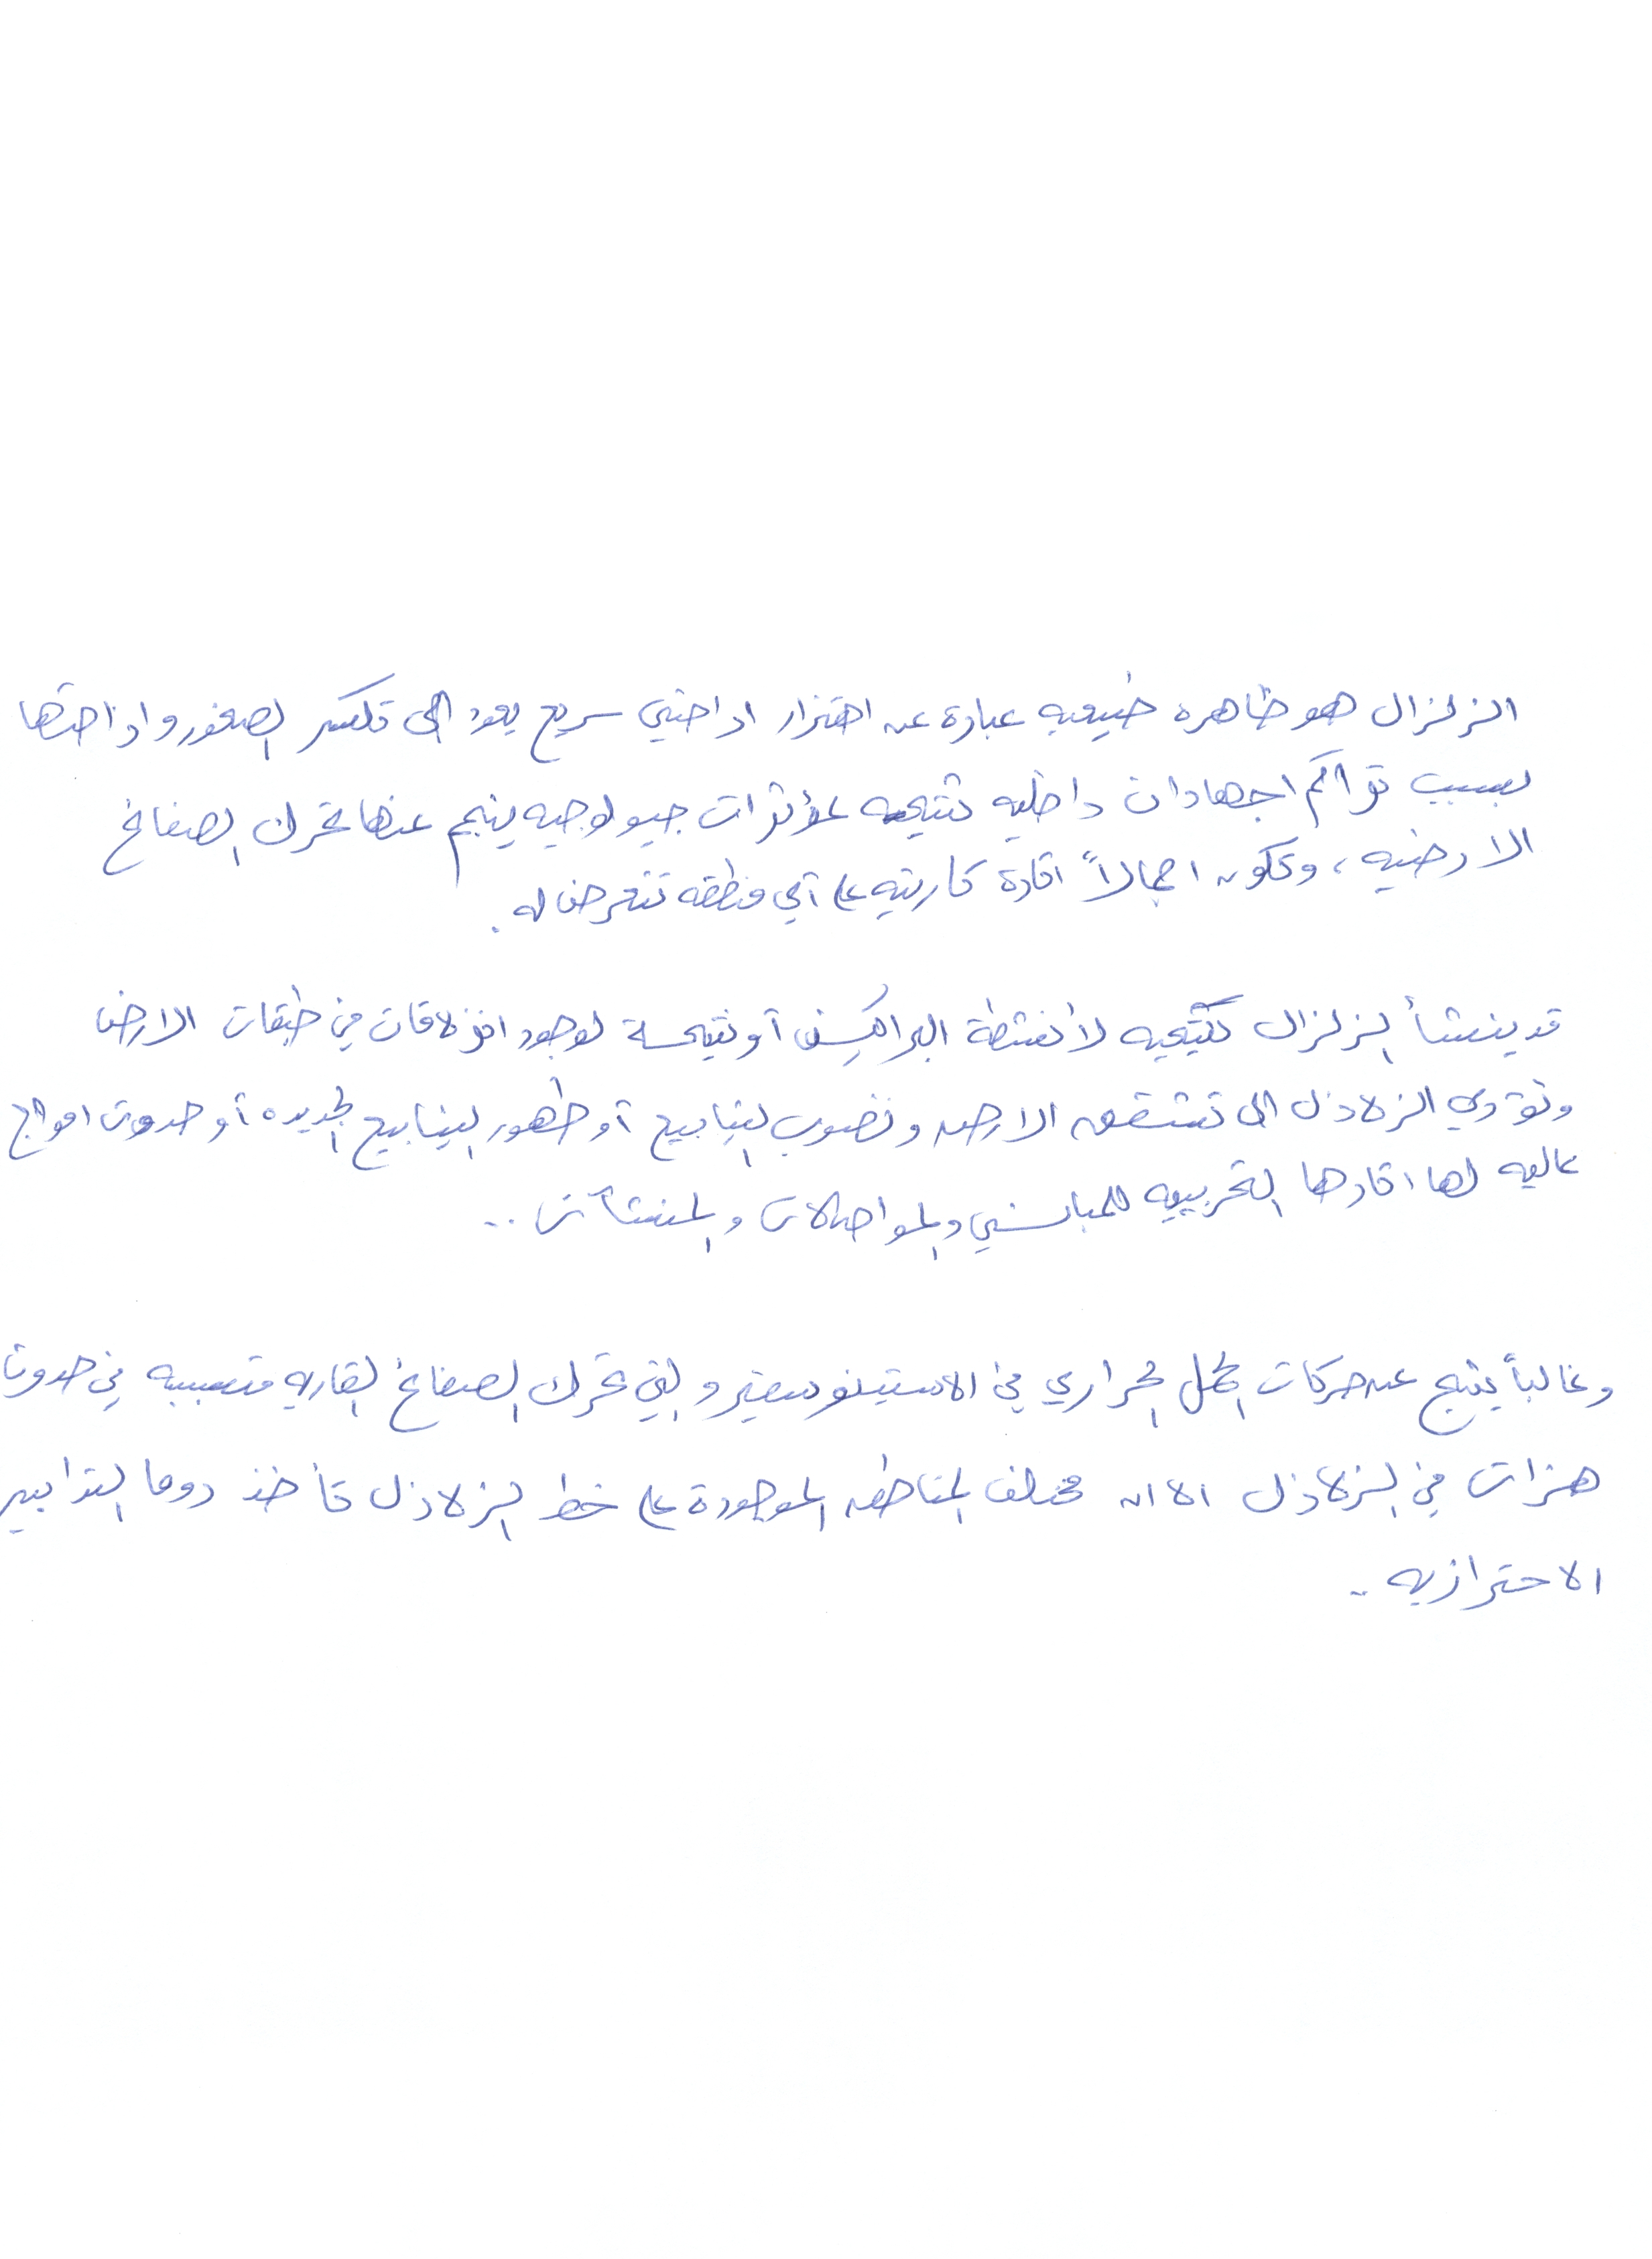 الزلزال هو ظاهره طبيعيه عبارة عن اهتزاز ارضي سريع يعود الى تكسر الصخور وازاحتها
بسبب تراكم اجهادات داخليه نتيجه لمؤثرات جيولوجيه ينجم عنها تحرك الصفائح
الارضيه، وتكون اجمالاً اثاره كارثيه على أي منطقه تتعرض له.
قد ينشأ الزلزال كنتيجيه لأنشطة البراكين أو نتيجة لوجود انزلاقات في طبقات الارض
وتؤدي الزلازل الى تشقق الارض ونضوب الينابيع أو ظهور الينابيع الجديده أو حدوث امواج
عاليه لها اثارها التخريبيه للمباني والمواصلات والمنشآت..
وغالباً ينتج عن حركات الحمل الحراري في الاستينوسفير والتي تحرك الصفائح القاريه متسببه في حدوث
هزات في الزلازل الا ان مختلف المناطق الموجودة على خط الزلازل تأخذ دوما التدابير
الاحترازيه ..